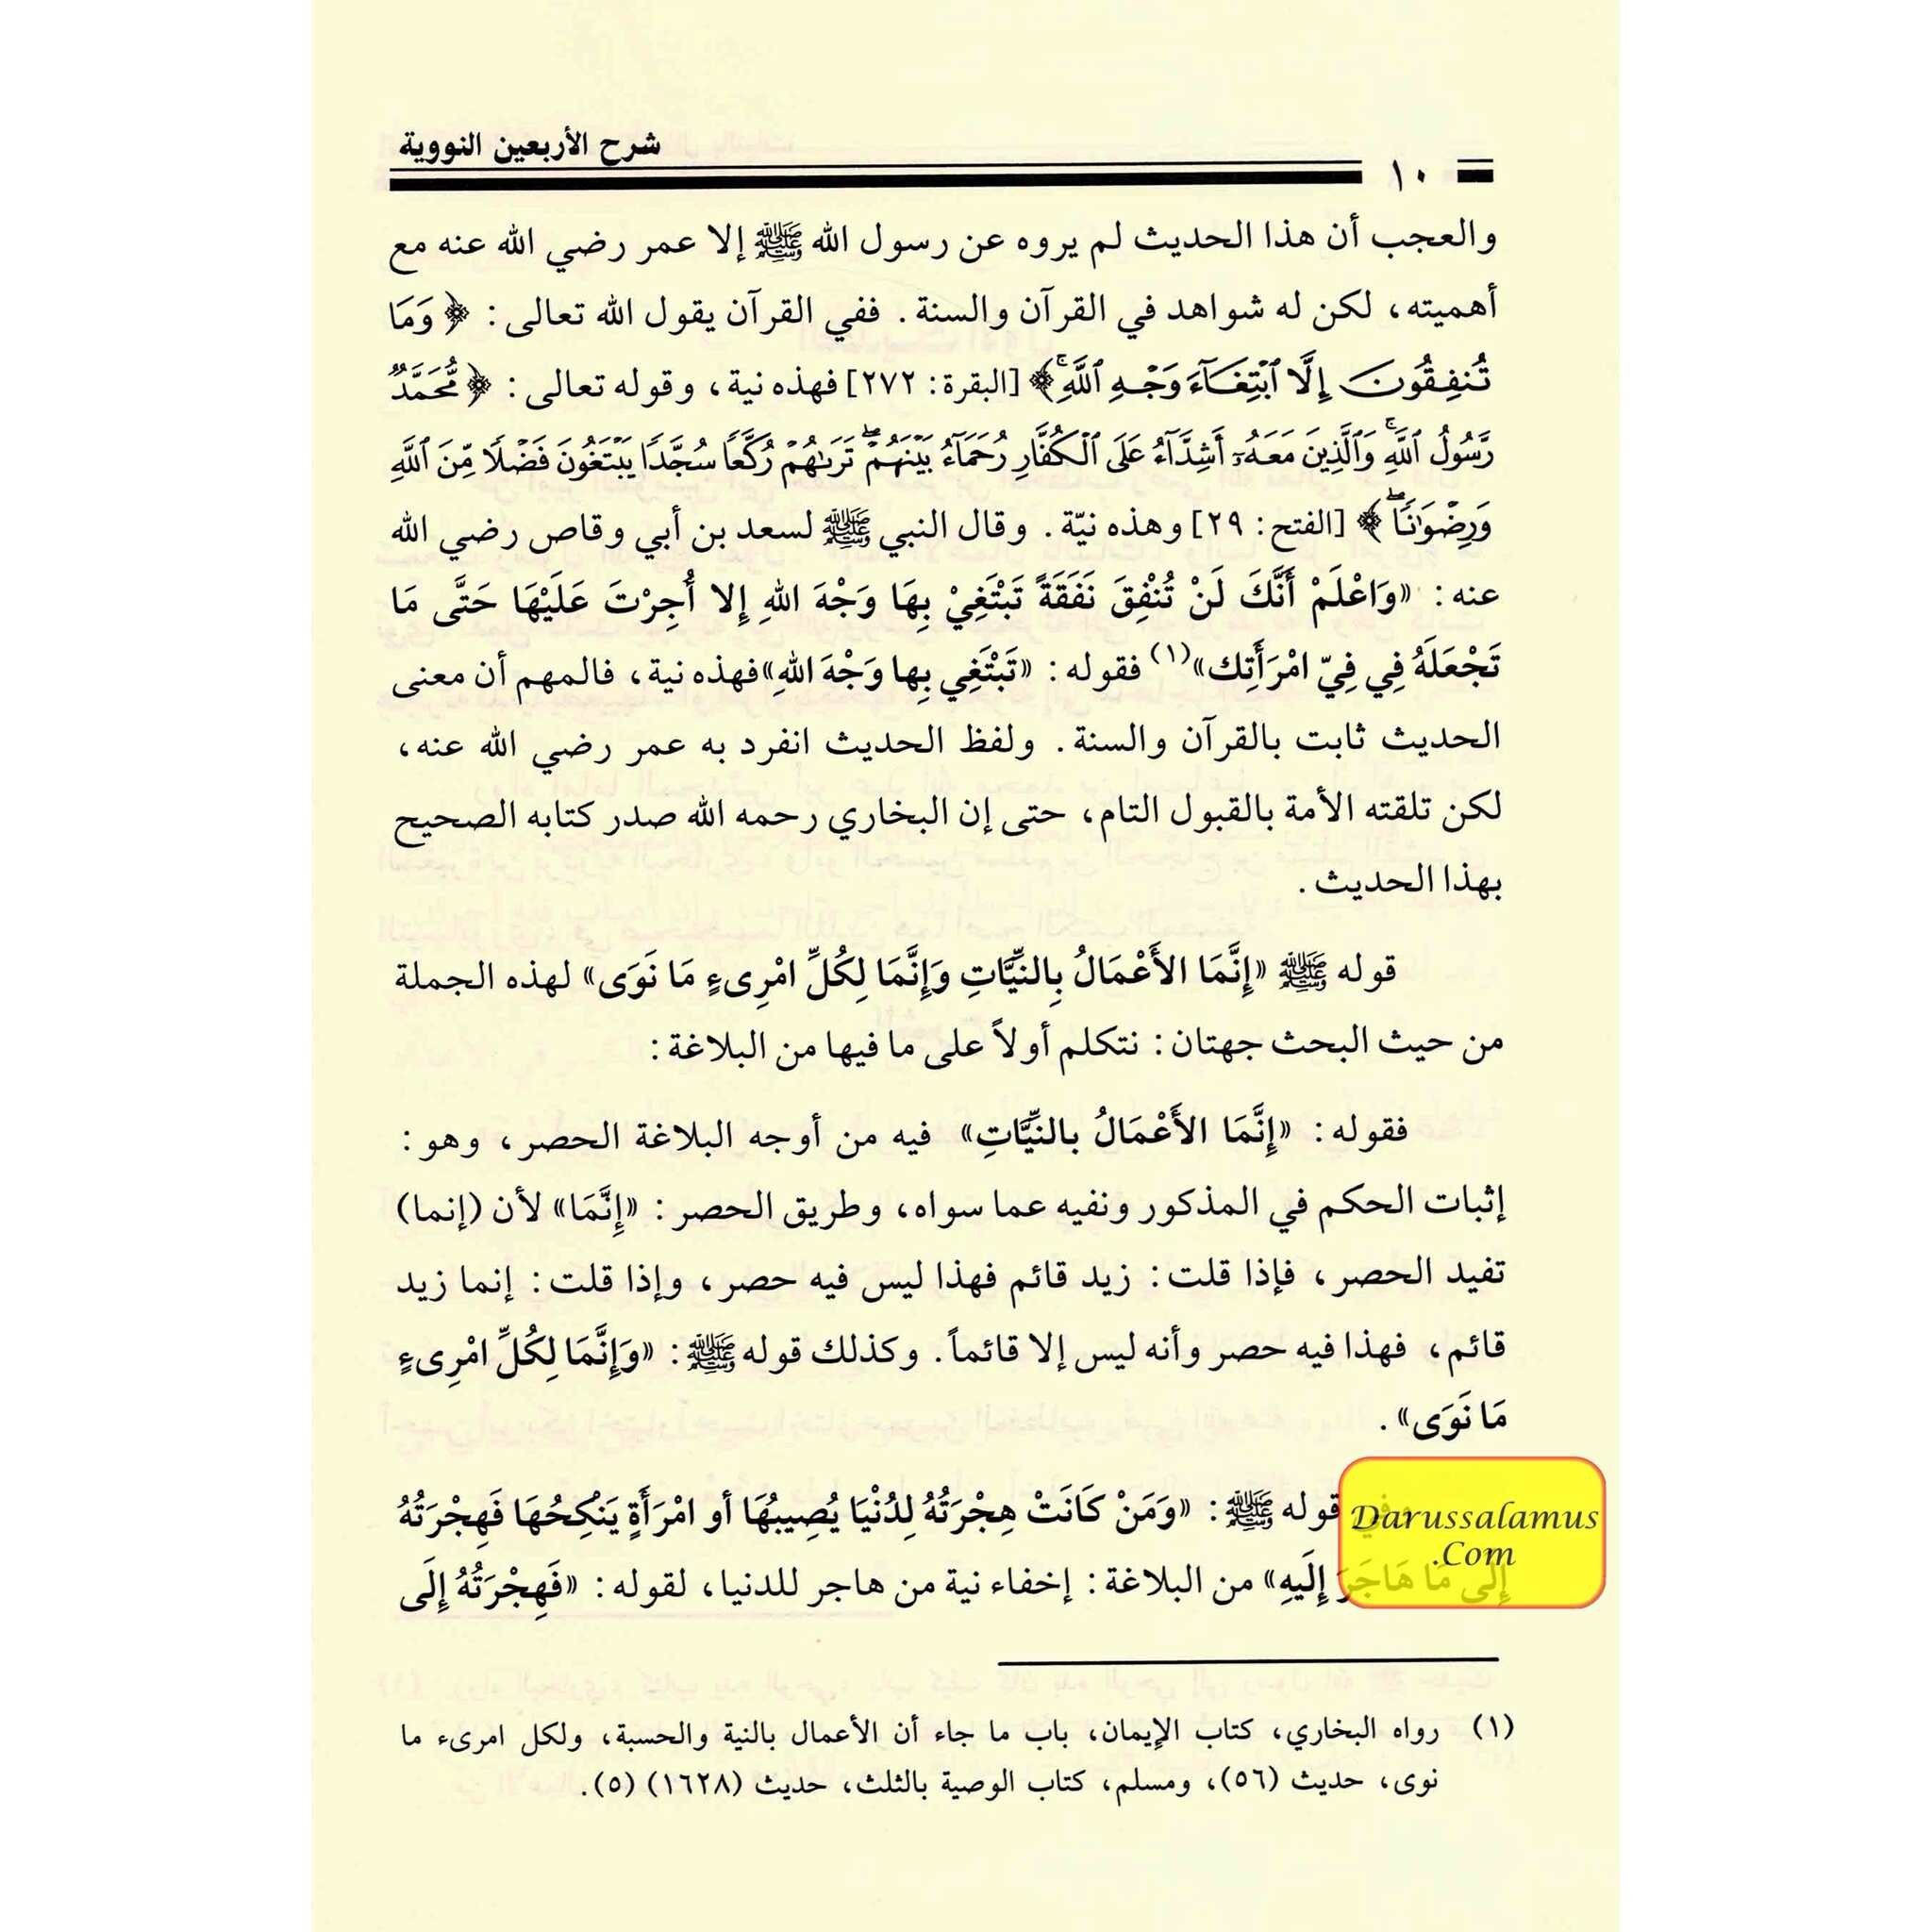 شرح الأربعين النووية
١٠
والعجب أن هذا الحديث لم يروه عن رسول الله ﷺ إلا عمر رضي الله عنه مع
أهميته، لكن له شواهد في القرآن والسنة. ففي القرآن يقول الله تعالى: ﴿وَمَا
تُنفِقُونَ إِلَّا ٱبْتِغَآءَ وَجْهِ ٱللَّهِ ۚ﴾ [البقرة: ٢٧٢] فهذه نية، وقوله تعالى: ﴿مُّحَمَّدٌ
رَّسُولُ ٱللَّهِ ۚ وَٱلَّذِينَ مَعَهُۥٓ أَشِدَّآءُ عَلَى ٱلْكُفَّارِ رُحَمَآءُ بَيْنَهُمْ ۖ تَرَىٰهُمْ رُكَّعًا سُجَّدًا يَبْتَغُونَ فَضْلًا مِّنَ ٱللَّهِ
وَرِضْوَٰنًا ۖ﴾ [الفتح: ٢٩] وهذه نيّة. وقال النبي ﷺ لسعد بن أبي وقاص رضي الله
عنه: «وَاعْلَمْ أَنَّكَ لَنْ تُنْفِقَ نَفَقَةً تَبْتَغِيْ بِهَا وَجْهَ اللهِ إِلا أُجِرْتَ عَلَيْهَا حَتَّى مَا
تَجْعَلَهُ فِي فِيّ امْرَأَتِك»(١) فقوله: «تَبْتَغِي بِها وَجْهَ اللهِ» فهذه نية، فالمهم أن معنى
الحديث ثابت بالقرآن والسنة. ولفظ الحديث انفرد به عمر رضي الله عنه،
لكن تلقته الأمة بالقبول التام، حتى إن البخاري رحمه الله صدر كتابه الصحيح
بهذا الحديث.
قوله ﷺ «إِنَّمَا الأَعْمَالُ بِالنيَّاتِ وَإِنَّمَا لِكُلِّ امْرِىءٍ مَا نَوَى» لهذه الجملة
من حيث البحث جهتان: نتكلم أولاً على ما فيها من البلاغة:
فقوله: «إِنَّمَا الأَعْمَالُ بالنيَّاتِ» فيه من أوجه البلاغة الحصر، وهو:
إثبات الحكم في المذكور ونفيه عما سواه، وطريق الحصر: «إِنَّمَا» لأن (إنما)
تفيد الحصر، فإذا قلت: زيد قائم فهذا ليس فيه حصر، وإذا قلت: إنما زيد
قائم، فهذا فيه حصر وأنه ليس إلا قائماً. وكذلك قوله ﷺ: «وَإِنَّمَا لِكُلِّ امْرِىءٍ
مَا نَوَى».
وفي قوله ﷺ: «وَمَنْ كَانَتْ هِجْرَتُهُ لِدُنْيَا يُصِيبُهَا أو امْرَأَةٍ يَنْكِحُهَا فَهِجْرَتُهُ
إِلَى مَا هَاجَرَ إِلَيهِ» من البلاغة: إخفاء نية من هاجر للدنيا، لقوله: «فَهِجْرَتُهُ إِلَى
Darussalamus
.Com
(١) رواه البخاري، كتاب الإيمان، باب ما جاء أن الأعمال بالنية والحسبة، ولكل امرىء ما
نوى، حديث (٥٦)، ومسلم، كتاب الوصية بالثلث، حديث (١٦٢٨) (٥).